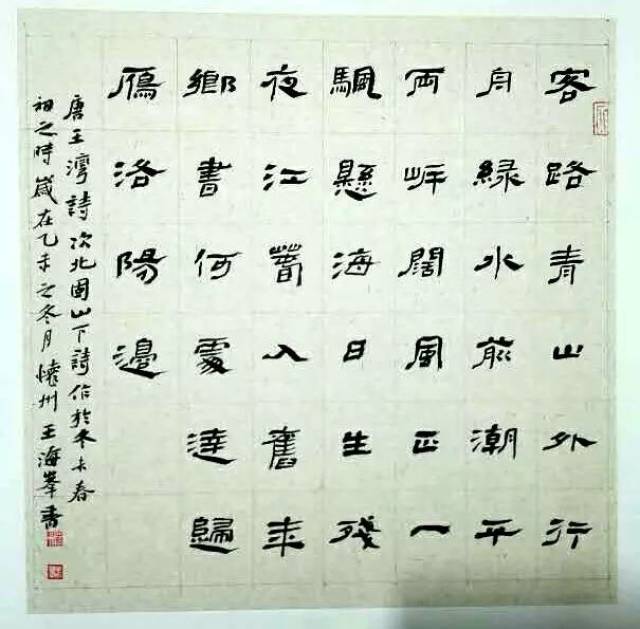 客路青山外行
舟綠水前潮平
兩岸闊風正一
颿懸海日生殘
夜江萅入舊年
鄉書何處達歸
鴈洛陽邊
唐王灣詩次北固山下詩作於冬末春
初之時歲在乙未之冬月懷州王海峯書